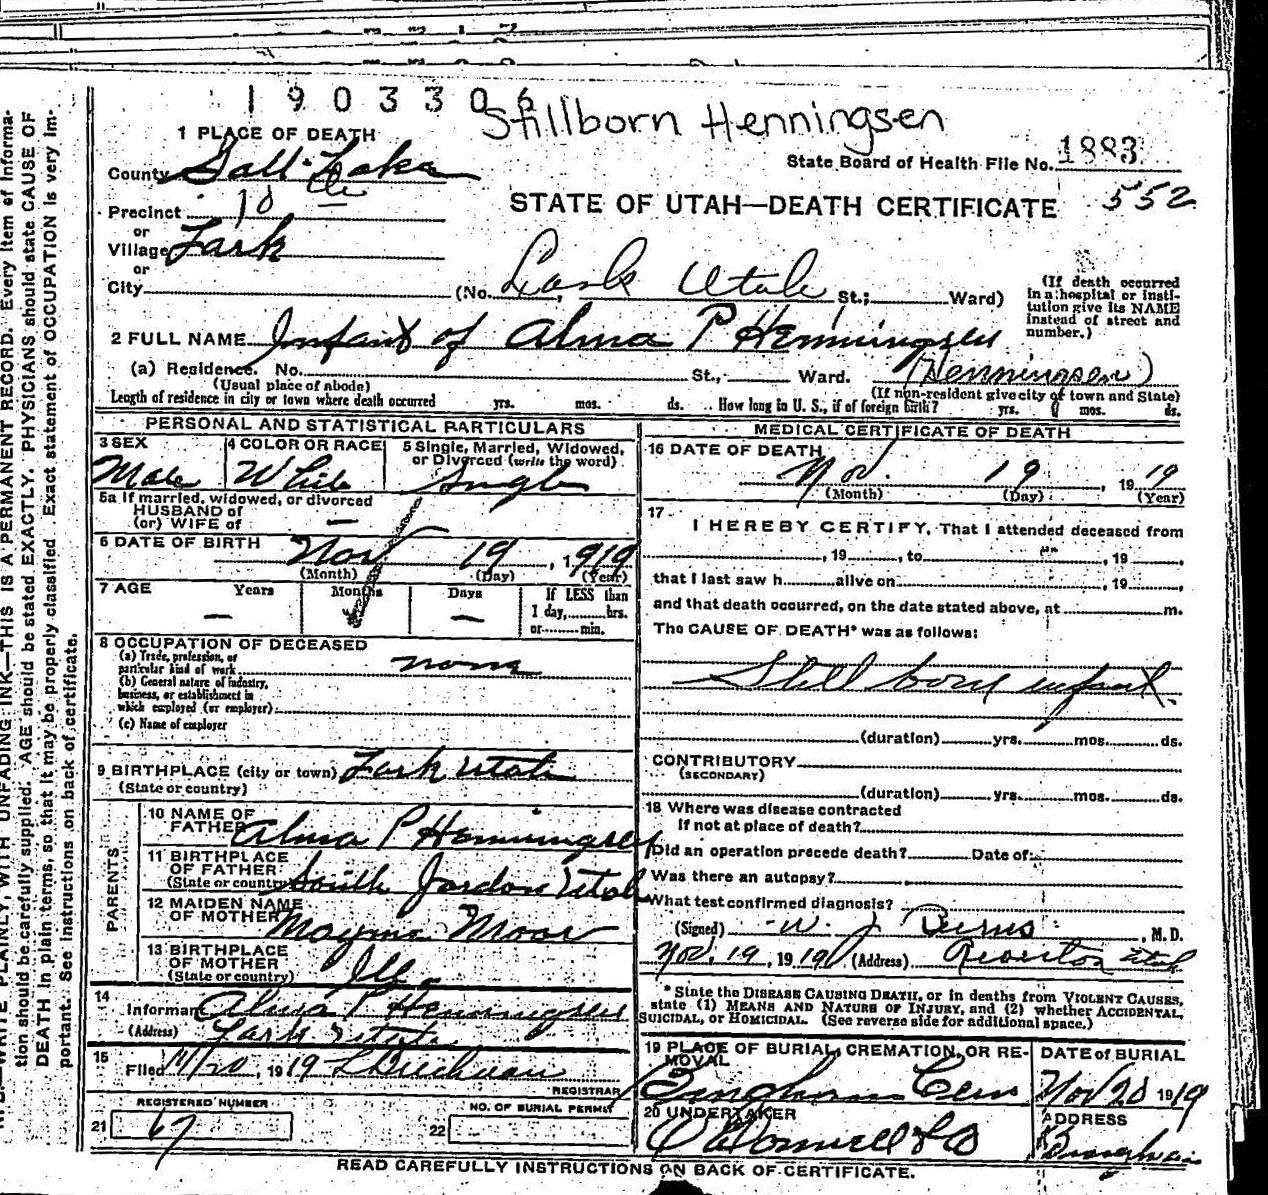 1903306
Stillborn Henningsen
1 PLACE OF DEATH
State Board of Health File No. 1883
County Salt Lake
552
Precinct 10
STATE OF UTAH—DEATH CERTIFICATE
or
Village Lark
or
City (No. Lark Utah St.; Ward)
(If death occurred in a hospital or institution give its NAME instead of street and number.)
2 FULL NAME Infant of Alma P Henningsen
(Henningsen)
(a) Residence. No. St., Ward.
(Usual place of abode) (If non-resident give city of town and State)
Length of residence in city or town where death occurred yrs. mos. ds. How long in U. S., if of foreign birth? yrs. mos. ds.
PERSONAL AND STATISTICAL PARTICULARS
3 SEX Male
4 COLOR OR RACE White
5 Single, Married, Widowed, or Divorced (write the word) Single
5a If married, widowed, or divorced
HUSBAND of
(or) WIFE of —
6 DATE OF BIRTH Nov 19, 1919
(Month) (Day) (Year)
7 AGE Years Months Days
— —
If LESS than
1 day, hrs.
or min.
8 OCCUPATION OF DECEASED
(a) Trade, profession, or
particular kind of work none
(b) General nature of industry,
business, or establishment in
which employed (or employer)
(c) Name of employer
9 BIRTHPLACE (city or town) Lark Utah
(State or country)
PARENTS
10 NAME OF FATHER Alma P Henningsen
11 BIRTHPLACE OF FATHER South Jordon Utah
(State or country)
12 MAIDEN NAME OF MOTHER
13 BIRTHPLACE OF MOTHER Ill
(State or country)
14
Informant Alma P Henningsen
(Address) Lark Utah
15
Filed 11/20, 1919
REGISTRAR
REGISTERED NUMBER
21 67
NO. OF BURIAL PERMIT
22
MEDICAL CERTIFICATE OF DEATH
16 DATE OF DEATH
Nov. 19, 1919
(Month) (Day) (Year)
17
I HEREBY CERTIFY, That I attended deceased from
, 19 , to , 19 ,
that I last saw h alive on , 19 ,
and that death occurred, on the date stated above, at m.
The CAUSE OF DEATH* was as follows:
Still born infant.
(duration) yrs. mos. ds.
CONTRIBUTORY
(SECONDARY)
(duration) yrs. mos. ds.
18 Where was disease contracted
If not at place of death?
Did an operation precede death? Date of:
Was there an autopsy?
What test confirmed diagnosis?
(Signed) W. J Burns, M. D.
Nov. 19, 1919 (Address) Riverton Utah
* State the DISEASE CAUSING DEATH, or in deaths from VIOLENT CAUSES,
state (1) MEANS AND NATURE OF INJURY, and (2) whether ACCIDENTAL,
SUICIDAL, or HOMICIDAL. (See reverse side for additional space.)
19 PLACE OF BURIAL, CREMATION, OR REMOVAL
Bingham Cem
DATE of BURIAL
Nov 20 1919
20 UNDERTAKER
O'Donnell & Co
ADDRESS
Bingham
READ CAREFULLY INSTRUCTIONS ON BACK OF CERTIFICATE.
WRITE PLAINLY, WITH UNFADING INK—THIS IS A PERMANENT RECORD. Every item of informa-
tion should be carefully supplied. AGE should be stated EXACTLY. PHYSICIANS should state CAUSE OF
DEATH in plain terms, so that it may be properly classified. Exact statement of OCCUPATION is very im-
portant. See instructions on back of certificate.